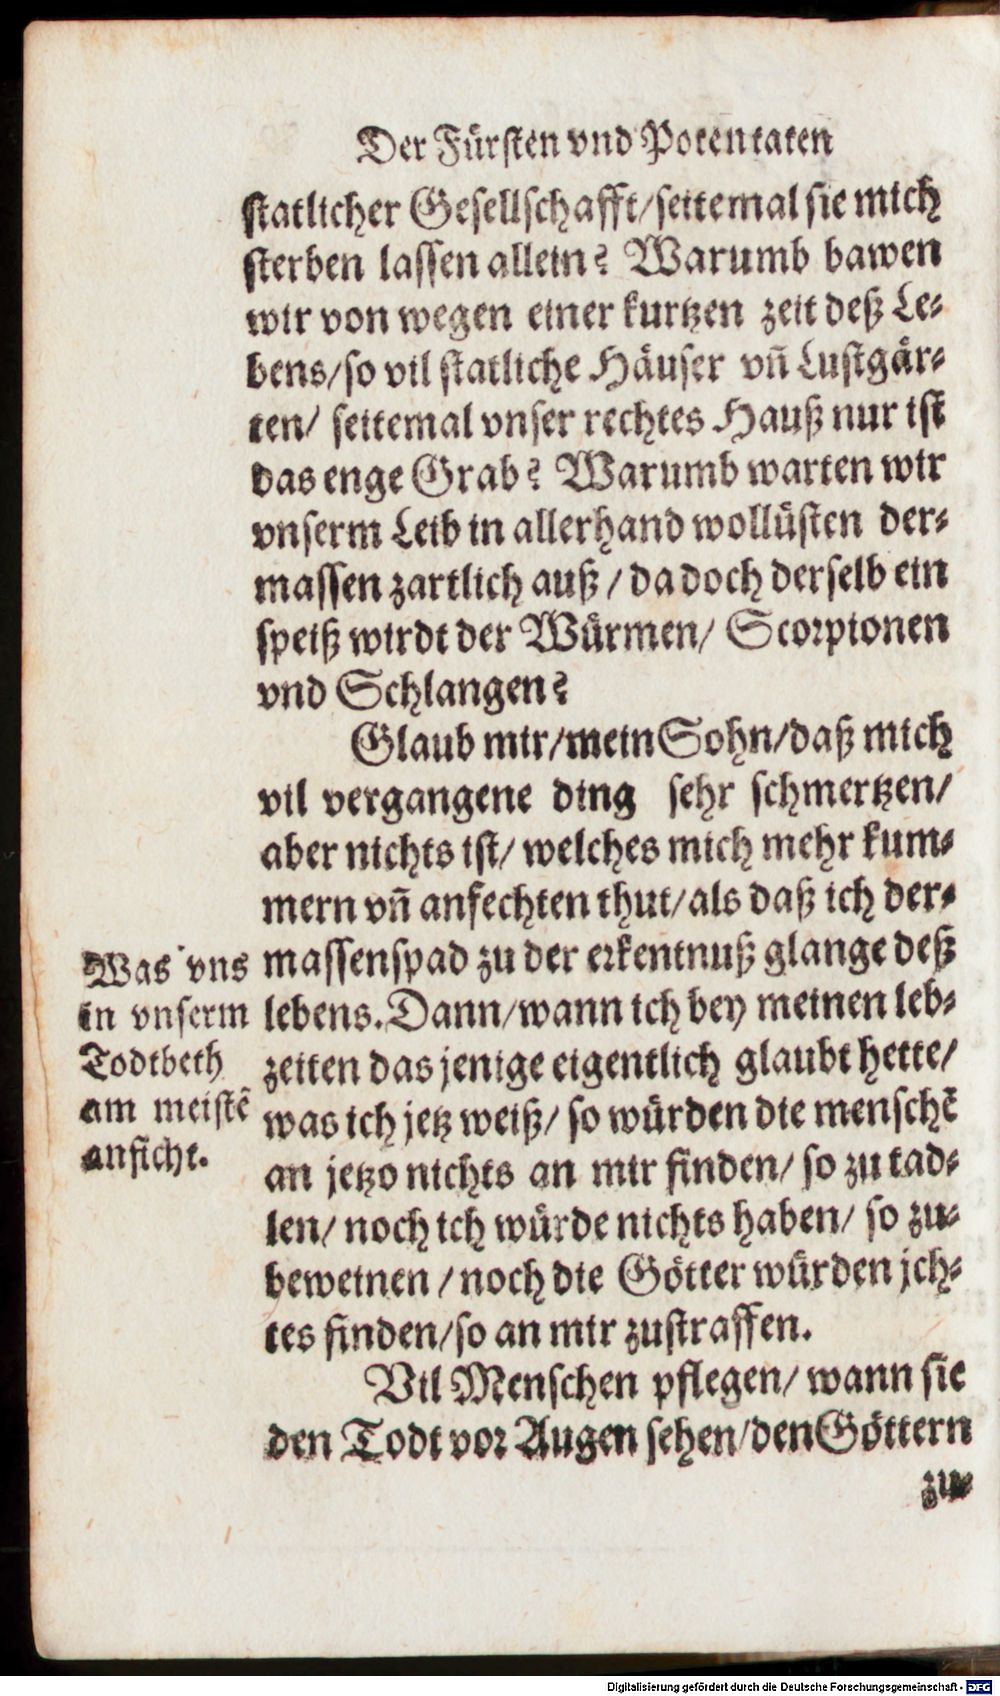 Der Fürsten vnd Potentaten
statlicher Gesellschafft/seittemal sie mich
sterben lassen allein? Warumb bawen
wir von wegen einer kurtzen zeit deß Le-
bens/so vil statliche Häuser vñ Lustgär-
ten/ seittemal vnser rechtes Hauß nur ist
das enge Grab? Warumb warten wir
vnserm Leib in allerhand wollüsten der-
massen zartlich auß / da doch derselb ein
speiß wirdt der Würmen/ Scorpionen
vnd Schlangen?
Glaub mir/mein Sohn/daß mich
vil vergangene ding sehr schmertzen/
aber nichts ist/ welches mich mehr kum-
mern vñ anfechten thut/als daß ich der-
massen spad zu der erkentnuß glange deß
lebens. Dann/wann ich bey meinen leb-
zeiten das jenige eigentlich glaubt hette/
was ich jetz weiß/ so würden die menschẽ
an jetzo nichts an mir finden/ so zu tad-
len/ noch ich würde nichts haben/ so zu-
beweinen / noch die Götter würden jch-
tes finden/so an mir zustraffen.
Vil Menschen pflegen/ wann sie
den Todt vor Augen sehen/den Göttern
zu-
Was vns
in vnserm
Todtbeth
am meistẽ
anficht.
Digitalisierung gefördert durch die Deutsche Forschungsgemeinschaft - DFG